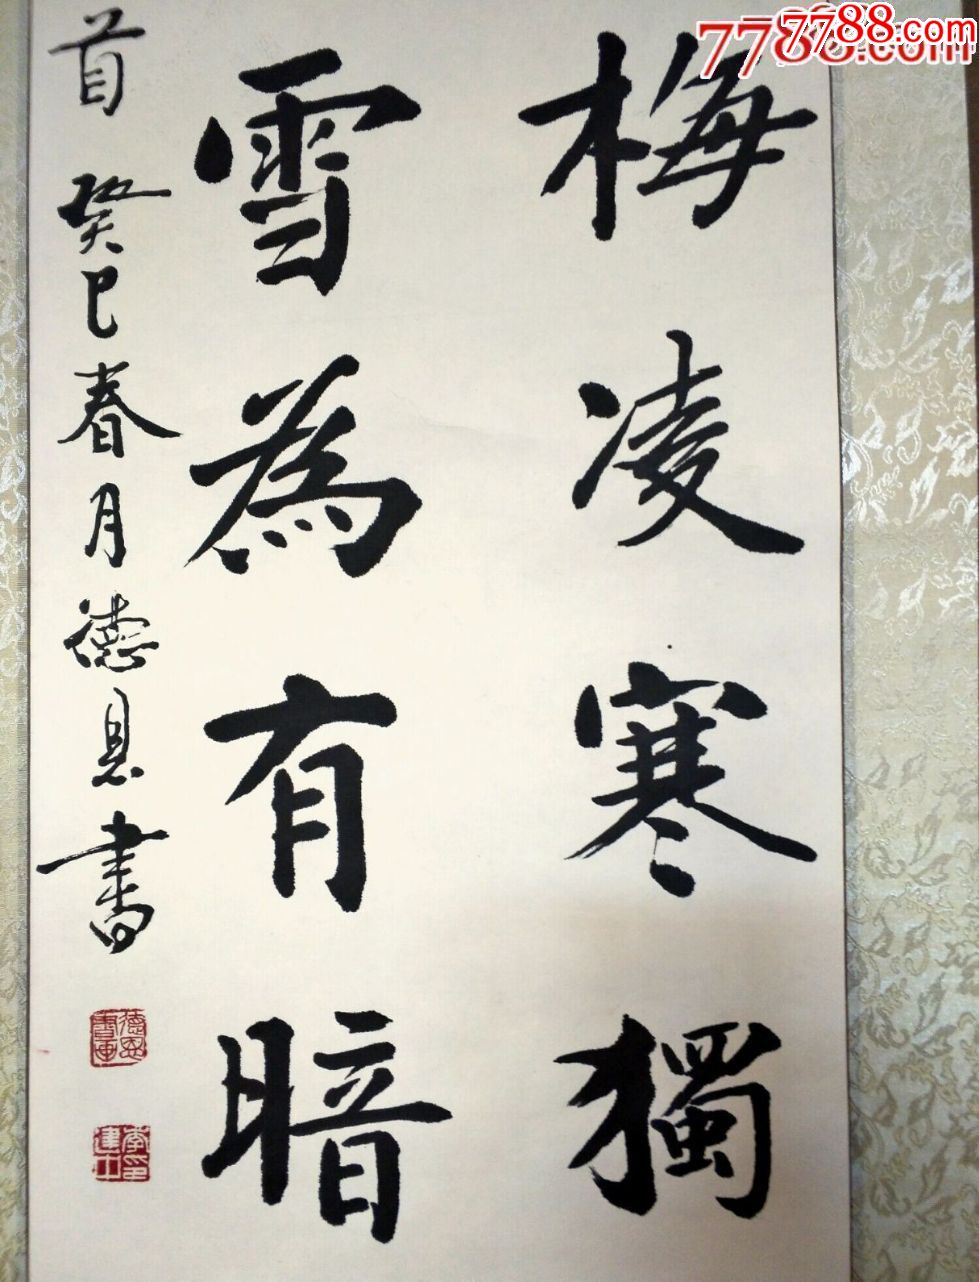 梅凌寒獨
雪為有暗
首 癸巳春月德恩書
德恩
7788.com
7788.com